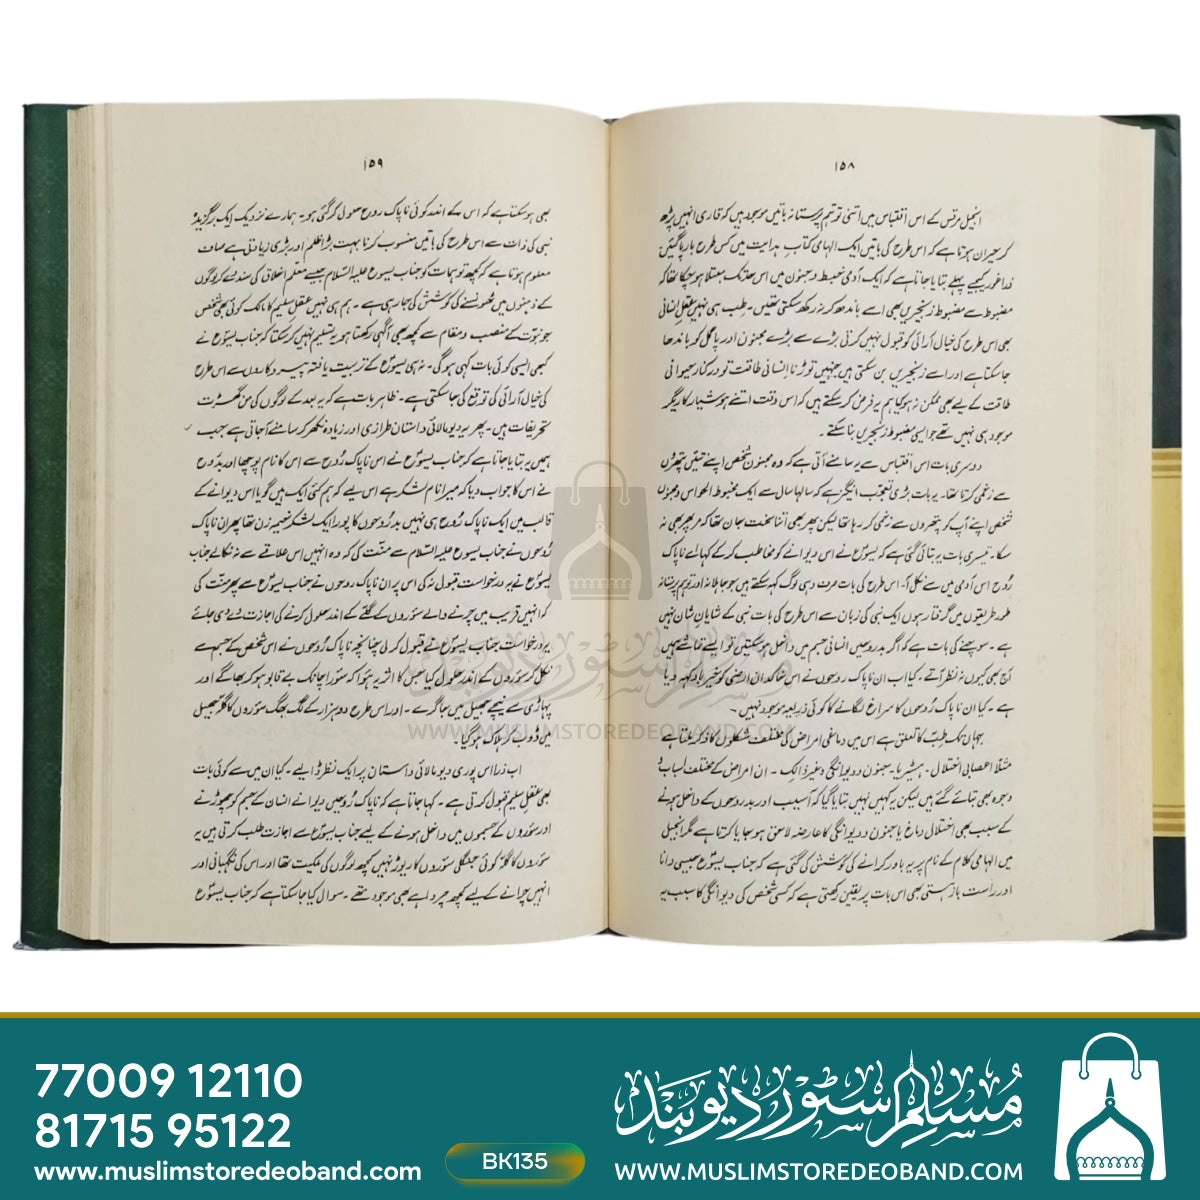 ۱۵۸
انجیل مرقس کے اس اقتباس میں اتنی توہم پرستانہ باتیں موجود ہیں کہ قاری انہیں پڑھ
کر حیران ہوتا ہے کہ اس طرح کی باتیں ایک الہامی کتاب ہدایت میں کس طرح بار پا گئیں
ذرا غور کیجیے پہلے بتایا جاتا ہے کہ ایک آدمی خبط و جنون میں اس حد تک مبتلا ہو چکا تھا کہ
مضبوط سے مضبوط زنجیریں بھی اسے باندھ کر نہ رکھ سکتی تھیں۔ طب ہی نہیں عقل انسانی
بھی اس طرح کی خیال آرائی کو قبول نہیں کرتی بڑے سے بڑے مجنون اور پاگل کو باندھا
جا سکتا ہے اور اسے زنجیریں بن سکتی ہیں جنہیں توڑنا انسانی طاقت تو در کنار حیوانی
طاقت کے لیے بھی ممکن نہ ہو کیا ہم یہ فرض کر سکتے ہیں کہ اس وقت اتنے ہوشیار کاریگر
موجود ہی نہیں تھے جو ایسی مضبوط زنجیریں بنا سکتے۔
دوسری بات اس اقتباس سے یہ سامنے آتی ہے کہ وہ مجنون شخص اپنے تئیں پتھروں
سے زخمی کرتا تھا۔ یہ بات بڑی تعجب انگیز ہے کہ سالہا سال سے ایک مخبوط الحواس و مجنوں
شخص اپنے آپ کو پتھروں سے زخمی کر رہا تھا لیکن پھر بھی اتنا سخت جان تھا کہ مر پھر بھی نہ
سکا۔ تیسری بات یہ بتائی گئی ہے کہ یسوع نے اس دیوانے کو مخاطب کر کے کہا اے ناپاک
روح اس آدمی میں سے نکل آ۔ اس طرح کی بات صرف وہی لوگ کہہ سکتے ہیں جو جاہلانہ اور توہم پرستانہ
طور طریقوں میں گرفتار ہوں ایک نبی کی زبان سے اس طرح کی بات نبی کے شایان شان نہیں
ہے۔ سوچنے کی بات ہے کہ اگر بدروحیں انسانی جسم میں داخل ہو سکتیں تو اپنے تماشے ہمیں
آج بھی کیوں نہ نظر آتے۔ کیا اب ان ناپاک روحوں نے اس خاکدان ارضی کو خیر باد کہہ دیا
ہے۔ کیا ان ناپاک روحوں کا سراغ لگانے کا کوئی ذریعہ موجود نہیں۔
جہاں تک طب کا تعلق ہے اس میں دماغی امراض کی مختلف شکلوں کا ذکر ملتا ہے
مثلا اعصابی اختلال۔ ہسٹیریا۔ جنون و دیوانگی وغیرہ ذالک۔ ان امراض کے مختلف اسباب و
وجوہ بھی بتائے گئے ہیں لیکن یہ کہیں نہیں بتایا گیا کہ آسیب اور بدروحوں کے داخل ہونے
کے سبب بھی اختلال دماغ یا جنون و دیوانگی کا عارضہ لاحق ہو جایا کرتا ہے مگر انجیل
میں الہامی کلام کے نام پر یہ باور کرانے کی کوشش کی گئی ہے کہ جناب یسوع جیسی دانا
اور راست باز ہستی بھی اس بات پر یقین رکھتی ہے کہ کسی شخص کی دیوانگی کا سبب یہ
۱۵۹
بھی ہو سکتا ہے کہ اس کے اندر کوئی ناپاک روح حلول کر گئی ہو۔ ہمارے نزدیک ایک برگزیدہ
نبی کی ذات سے اس طرح کی باتیں منسوب کرنا بہت بڑا ظلم اور بڑی زیادتی ہے صاف
معلوم ہوتا ہے کہ کچھ توہمات کو جناب یسوع علیہ السلام جیسے معلم اخلاق کی سند لے کر لوگوں
کے ذہنوں میں ٹھونسنے کی کوشش کی جا رہی ہے۔ ہم ہی نہیں عقل سلیم کا مالک کوئی بھی شخص
جو نبوت کے منصب و مقام سے کچھ بھی آگہی رکھتا ہو یہ تسلیم نہیں کر سکتا کہ جناب یسوع نے
کبھی ایسی کوئی بات کہی ہو گی۔ نہ ہی یسوع کے تربیت یافتہ پیروکاروں سے اس طرح
کی خیال آرائی کی توقع کی جا سکتی ہے۔ ظاہر بات ہے کہ یہ بعد کے لوگوں کی من گھڑت
تحریفات ہیں۔ پھر یہ دیو مالائی داستان طرازی اور زیادہ نکھر کر سامنے آ جاتی ہے جب
ہمیں یہ بتایا جاتا ہے کہ جناب یسوع نے اس ناپاک روح سے اس کا نام پوچھا اور بدروح
نے اس کا جواب دیا کہ میرا نام لشکر ہے اس لیے کہ ہم کئی ایک ہیں گویا اس دیوانے کے
قالب میں ایک ناپاک روح ہی نہیں بدروحوں کا پورا ایک لشکر خیمہ زن تھا پھر ان ناپاک
روحوں نے جناب یسوع علیہ السلام سے منت کی کہ وہ انہیں اس علاقے سے نہ نکالے جناب
یسوع نے یہ درخواست قبول نہ کی اس پر ان ناپاک روحوں نے جناب یسوع سے پھر منت کی
کہ انہیں قریب میں چرنے والے سوروں کے گلے کے اندر حلول کرنے کی اجازت دے دی جائے
یہ درخواست جناب یسوع نے قبول کر لی چنانچہ ناپاک روحوں نے اس شخص کے جسم سے
نکل کر سوروں کے اندر حلول کیا جس کا اثر یہ ہوا کہ سور اچانک بے قابو ہو کر بھاگے اور
پہاڑی سے نیچے جھیل میں جا گرے۔ اور اس طرح دو ہزار کے لگ بھگ سوروں کا گلہ جھیل
میں ڈوب کر ہلاک ہو گیا۔
اب ذرا اس پوری دیو مالائی داستان پر ایک نظر ڈالیے۔ کیا ان میں سے کوئی بات
بھی عقل سلیم قبول کرتی ہے۔ کہا جاتا ہے کہ ناپاک روحیں دیوانے انسان کے جسم کو چھوڑنے
اور سوروں کے جسموں میں داخل ہونے کے لیے جناب یسوع سے اجازت طلب کرتی ہیں یہ
سوروں کا گلہ کوئی جنگلی سوروں کا ریوڑ نہیں کچھ لوگوں کی ملکیت تھا اور اس کی نگہبانی اور
انہیں چرانے کے لیے کچھ چرواہے بھی موجود تھے۔ سوال کیا جا سکتا ہے کہ جناب یسوع
مسلم سٹور دیوبند
WWW.MUSLIMSTOREDEOBAND.COM
77009 12110
81715 95122
www.muslimstoredeoband.com
BK135
مسلم سٹور دیوبند
WWW.MUSLIMSTOREDEOBAND.COM